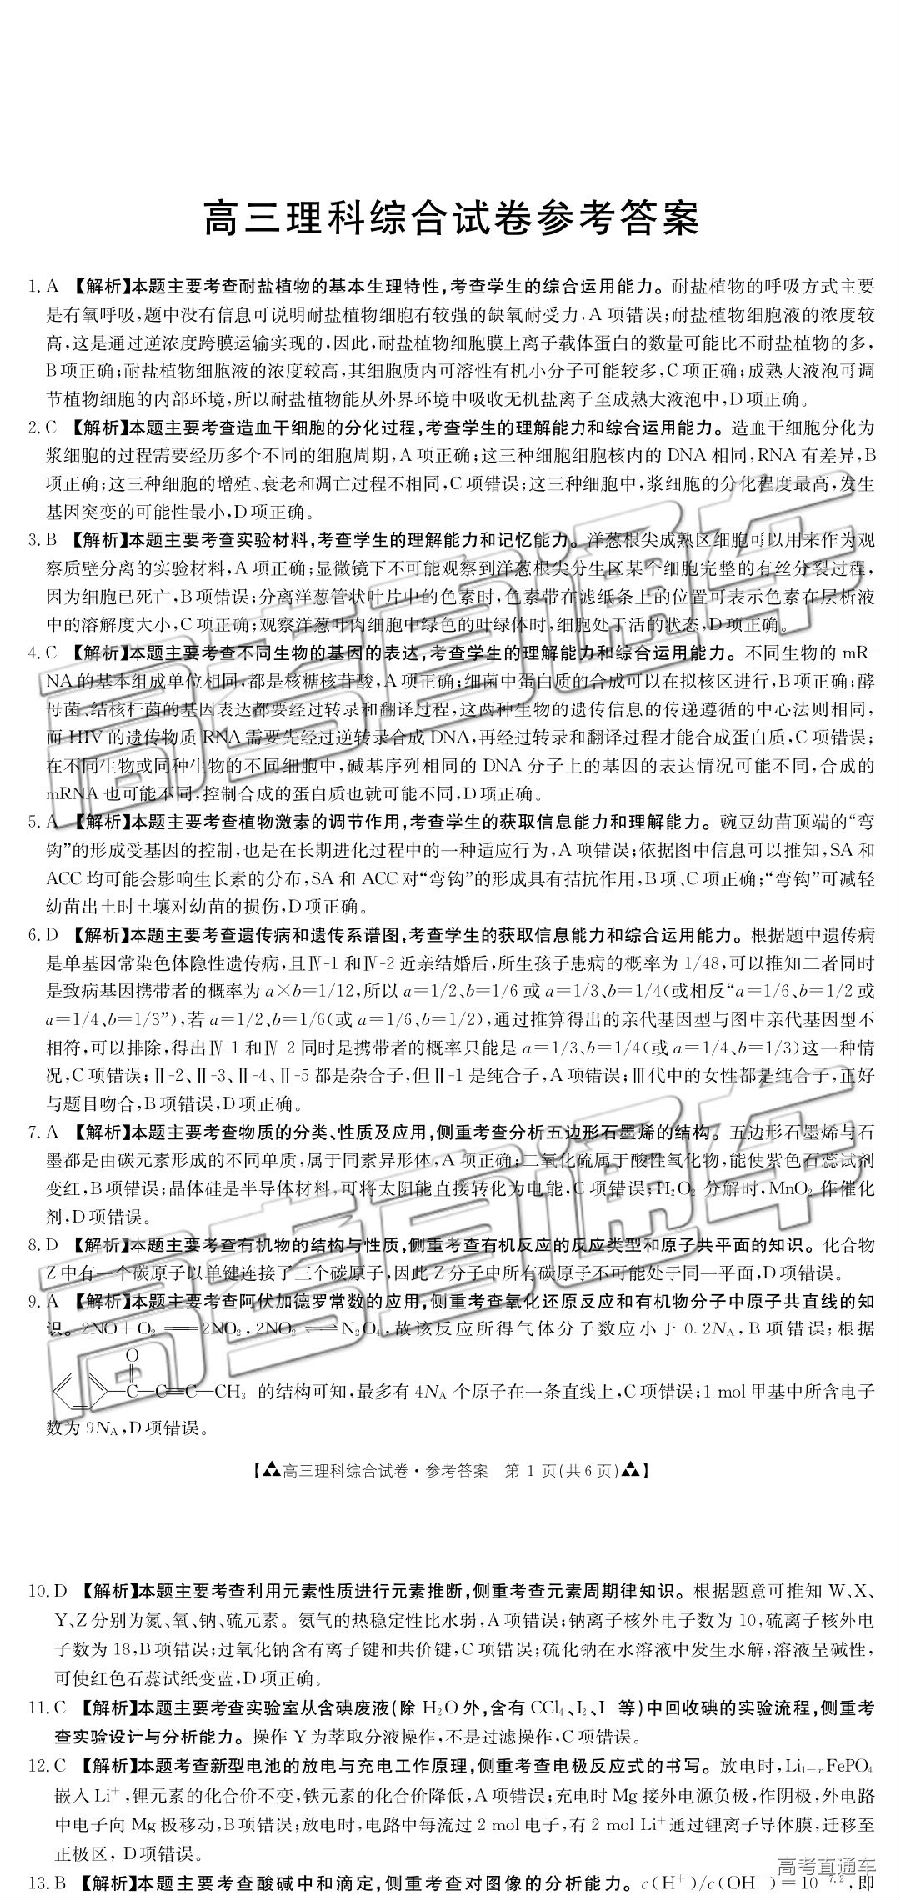 高三理科综合试卷参考答案
1. A 【解析】本题主要考查耐盐植物的基本生理特性,考查学生的综合运用能力。耐盐植物的呼吸方式主要
是有氧呼吸,题中没有信息可说明耐盐植物细胞有较强的缺氧耐受力,A 项错误;耐盐植物细胞液的浓度较
高,这是通过逆浓度跨膜运输实现的,因此,耐盐植物细胞膜上离子载体蛋白的数量可能比不耐盐植物的多,
B项正确;耐盐植物细胞液的浓度较高,其细胞质内可溶性有机小分子可能较多,C项正确;成熟大液泡可调
节植物细胞的内部环境,所以耐盐植物能从外界环境中吸收无机盐离子至成熟大液泡中,D项正确。
2. C 【解析】本题主要考查造血干细胞的分化过程,考查学生的理解能力和综合运用能力。造血干细胞分化为
浆细胞的过程需要经历多个不同的细胞周期,A 项正确;这三种细胞细胞核内的 DNA 相同,RNA 有差异,B
项正确;这三种细胞的增殖、衰老和凋亡过程不相同,C项错误;这三种细胞中,浆细胞的分化程度最高,发生
基因突变的可能性最小,D项正确。
3. B 【解析】本题主要考查实验材料,考查学生的理解能力和记忆能力。洋葱根尖成熟区细胞可以用来作为观
察质壁分离的实验材料,A 项正确;显微镜下不可能观察到洋葱根尖分生区某个细胞完整的有丝分裂过程,
因为细胞已死亡,B项错误;分离洋葱管状叶片中的色素时,色素带在滤纸条上的位置可表示色素在层析液
中的溶解度大小,C项正确;观察洋葱叶肉细胞中绿色的叶绿体时,细胞处于活的状态,D项正确。
4. C 【解析】本题主要考查不同生物的基因的表达,考查学生的理解能力和综合运用能力。不同生物的 mR
NA的基本组成单位相同,都是核糖核苷酸,A 项正确;细菌中蛋白质的合成可以在拟核区进行,B项正确;酵
母菌、结核杆菌的基因表达都要经过转录和翻译过程,这两种生物的遗传信息的传递遵循的中心法则相同,
而 HIV 的遗传物质 RNA 需要先经过逆转录合成 DNA,再经过转录和翻译过程才能合成蛋白质,C 项错误;
在不同生物或同种生物的不同细胞中,碱基序列相同的 DNA 分子上的基因的表达情况可能不同,合成的
mRNA 也可能不同,控制合成的蛋白质也就可能不同,D项正确。
5. A 【解析】本题主要考查植物激素的调节作用,考查学生的获取信息能力和理解能力。豌豆幼苗顶端的“弯
钩”的形成受基因的控制,也是在长期进化过程中的一种适应行为,A 项错误;依据图中信息可以推知,SA 和
ACC 均可能会影响生长素的分布,SA 和 ACC 对“弯钩”的形成具有拮抗作用,B项、C项正确;“弯钩”可减轻
幼苗出土时土壤对幼苗的损伤,D项正确。
6. D 【解析】本题主要考查遗传病和遗传系谱图,考查学生的获取信息能力和综合运用能力。根据题中遗传病
是单基因常染色体隐性遗传病,且Ⅳ-1 和Ⅳ-2 近亲结婚后,所生孩子患病的概率为 1/48,可以推知二者同时
是致病基因携带者的概率为 a×b=1/12,所以 a=1/2、b=1/6 或 a=1/3、b=1/4(或相反“a=1/6、b=1/2 或
a=1/4、b=1/3”),若 a=1/2、b=1/6(或 a=1/6、b=1/2),通过推算得出的亲代基因型与图中亲代基因型不
相符,可以排除,得出Ⅳ-1 和Ⅳ-2 同时是携带者的概率只能是 a=1/3、b=1/4(或 a=1/4、b=1/3)这一种情
况,C项错误;Ⅱ-2、Ⅱ-3、Ⅱ-4、Ⅱ-5 都是杂合子,但Ⅱ-1 是纯合子,A 项错误;Ⅲ代中的女性都是纯合子,正好
与题目吻合,B项错误,D项正确。
7. A 【解析】本题主要考查物质的分类、性质及应用,侧重考查分析五边形石墨烯的结构。五边形石墨烯与石
墨都是由碳元素形成的不同单质,属于同素异形体,A 项正确;二氧化硫属于酸性氧化物,能使紫色石蕊试剂
变红,B项错误;晶体硅是半导体材料,可将太阳能直接转化为电能,C 项错误;H₂O₂ 分解时,MnO₂ 作催化
剂,D项错误。
8. D 【解析】本题主要考查有机物的结构与性质,侧重考查有机反应的反应类型和原子共平面的知识。化合物
Z中有一个碳原子以单键连接了三个碳原子,因此 Z 分子中所有碳原子不可能处于同一平面,D项错误。
9. A 【解析】本题主要考查阿伏加德罗常数的应用,侧重考查氧化还原反应和有机物分子中原子共直线的知
识。2NO+O₂══2NO₂,2NO₂⇌N₂O₄,故该反应所得气体分子数应小于 0.2Nᴀ,B 项错误;根据
O
—C—C≡C—CH₃ 的结构可知,最多有 4Nᴀ 个原子在一条直线上,C项错误;1 mol 甲基中所含电子
数为 9Nᴀ,D项错误。
【高三理科综合试卷·参考答案 第 1 页(共 6 页)】
10. D 【解析】本题主要考查利用元素性质进行元素推断,侧重考查元素周期律知识。根据题意可推知 W、X、
Y、Z 分别为氮、氧、钠、硫元素。氨气的热稳定性比水弱,A 项错误;钠离子核外电子数为 10,硫离子核外电
子数为 18,B项错误;过氧化钠含有离子键和共价键,C 项错误;硫化钠在水溶液中发生水解,溶液呈碱性,
可使红色石蕊试纸变蓝,D项正确。
11. C 【解析】本题主要考查实验室从含碘废液(除 H₂O 外,含有 CCl₄、I₂、I⁻ 等)中回收碘的实验流程,侧重考
查实验设计与分析能力。操作 Y 为萃取分液操作,不是过滤操作,C项错误。
12. C 【解析】本题考查新型电池的放电与充电工作原理,侧重考查电极反应式的书写。放电时,Li₁₋ₓFePO₄
嵌入 Li⁺,锂元素的化合价不变,铁元素的化合价降低,A 项错误;充电时 Mg 接外电源负极,作阴极,外电路
中电子向 Mg 极移动,B项错误;放电时,电路中每流过 2 mol 电子,有 2 mol Li⁺通过锂离子导体膜,迁移至
正极区, D项错误。
13. B 【解析】本题主要考查酸碱中和滴定,侧重考查对图像的分析能力。c(H⁺)/c(OH⁻)=10⁻⁷·²,即
高考直通车
高考直通车
高考直通车